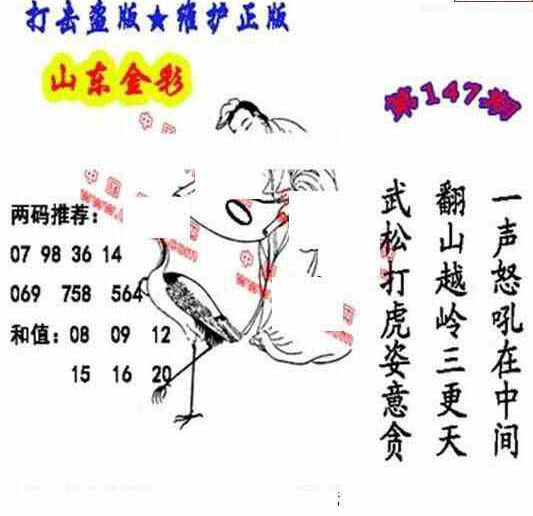 打击盗版★维护正版
山东金彩
第147期
两码推荐：
07 98 36 14
069 758 564
和值：08 09 12
15 16 20
一声怒吼在中间
翻山越岭三更天
武松打虎姿意贪